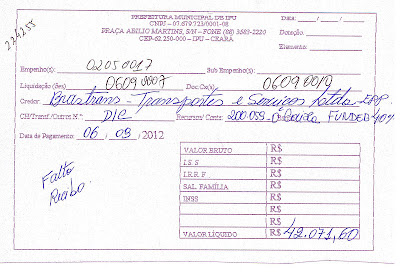 224255
PREFEITURA MUNICIPAL DE IPU
CNPJ - 07.679.723/0001-08
PRAÇA ABILIO MARTINS, S/N - FONE (88) 3683-2220
CEP-62.250-000 - IPU - CEARÁ
Data: ___/___/___
Dotação:
Elemento:
Empenho(s): 02050017 Sub-Empenho(s):
Liquidação (ões) 06090007 Doc.Cx(s) 06090019
Credor: Brastrans - Transportes e Serviços Ltda EPP
CH/Transf./Outros N.º: D/C Recursos/ Conta: 200.059- FUNDEB 40%
Data de Pagamento: 06 / 09 / 2012
Falta
Recibo.
VALOR BRUTO R$
I.S.S R$
I.R.R.F R$
SAL. FAMÍLIA R$
INSS R$
R$
VALOR LÍQUIDO R$ 42.071,60